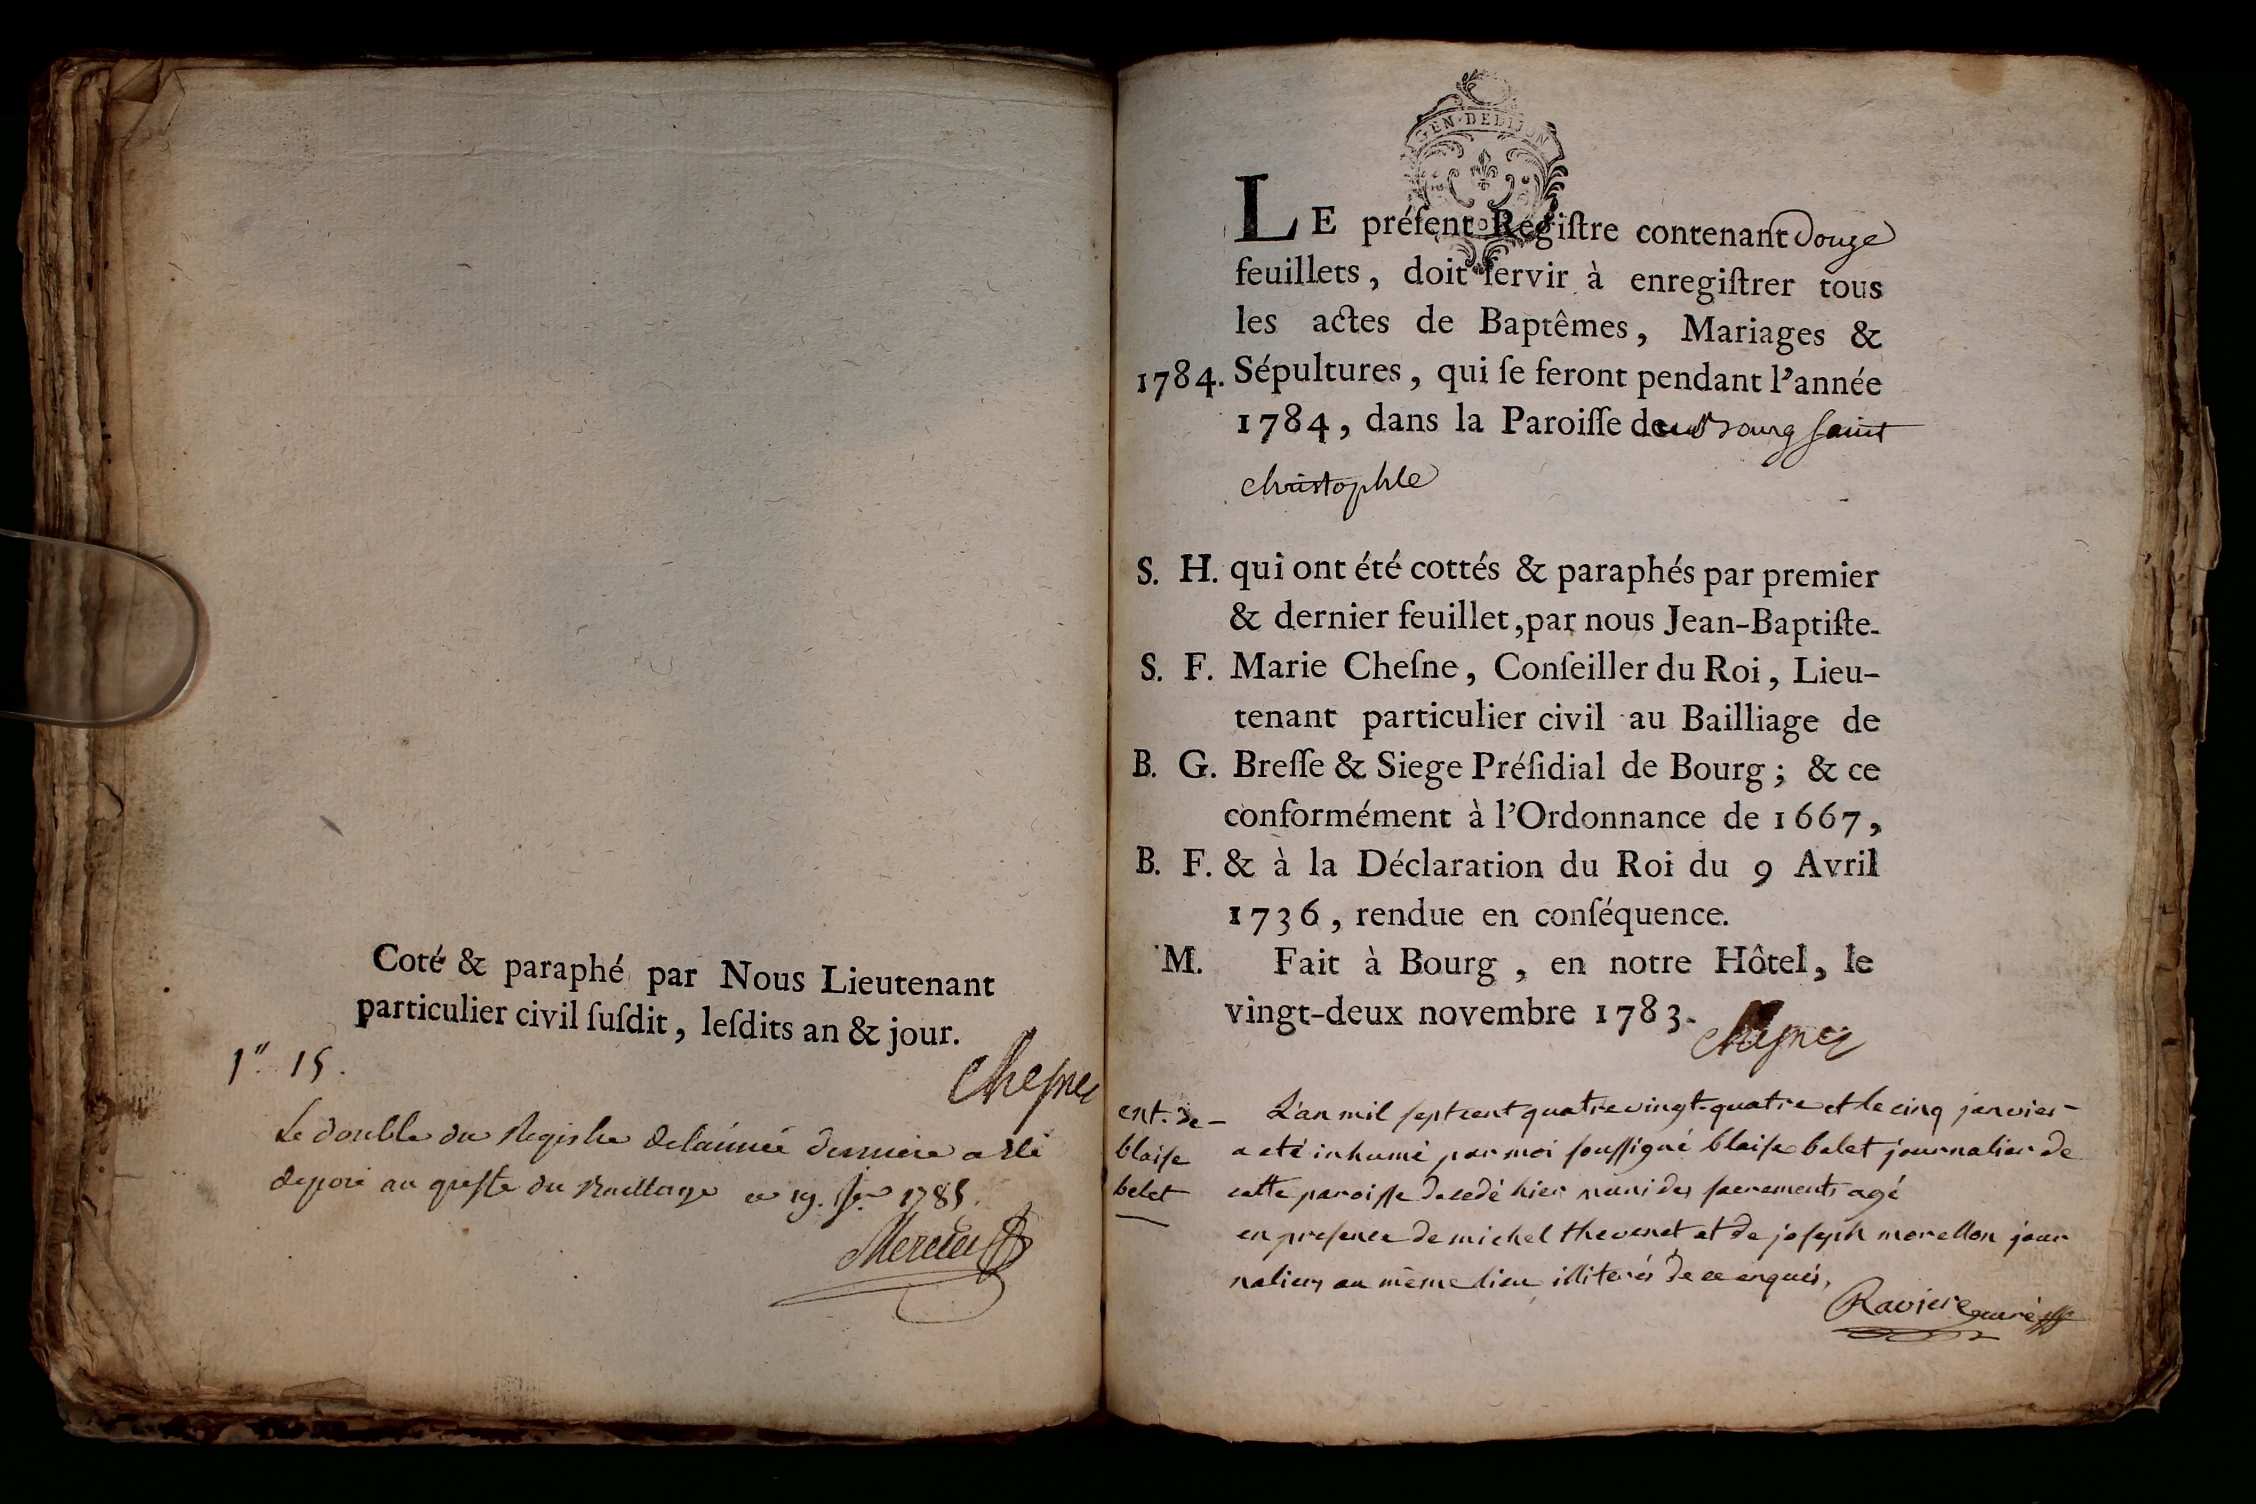 Coté & paraphé par Nous Lieutenant
particulier civil ſuſdit, leſdits an & jour.
15.
chesne
Le double du Registre de lannée derniere a été
deposé au greffe du Bailliage ce 19. 1785.
Mercier
GEN·DE DIJON
LE préſent Régiſtre contenant douze
feuillets, doit ſervir à enregiſtrer tous
les actes de Baptêmes, Mariages &
1784. Sépultures, qui ſe feront pendant l'année
1784, dans la Paroiſſe de Bourg saint
christophle
S. H. qui ont été cottés & paraphés par premier
& dernier feuillet, par nous Jean-Baptiſte-
S. F. Marie Cheſne, Conſeiller du Roi, Lieu-
tenant particulier civil au Bailliage de
B. G. Breſſe & Siege Préſidial de Bourg; & ce
conformément à l'Ordonnance de 1667,
B. F. & à la Déclaration du Roi du 9 Avril
1736, rendue en conſéquence.
M. Fait à Bourg, en notre Hôtel, le
vingt-deux novembre 1783.
chesne
ent. de
blaise
belet
L'an mil sept cent quatre vingt-quatre et le cinq janvier
a été inhumé par moi soussigné blaise belet journalier de
cette paroisse decedé hier muni des sacrements agé
en presence de michel thevenet et de joseph morellon jour
naliers au même lieu illiterés de ce enquis,
Raviere curé